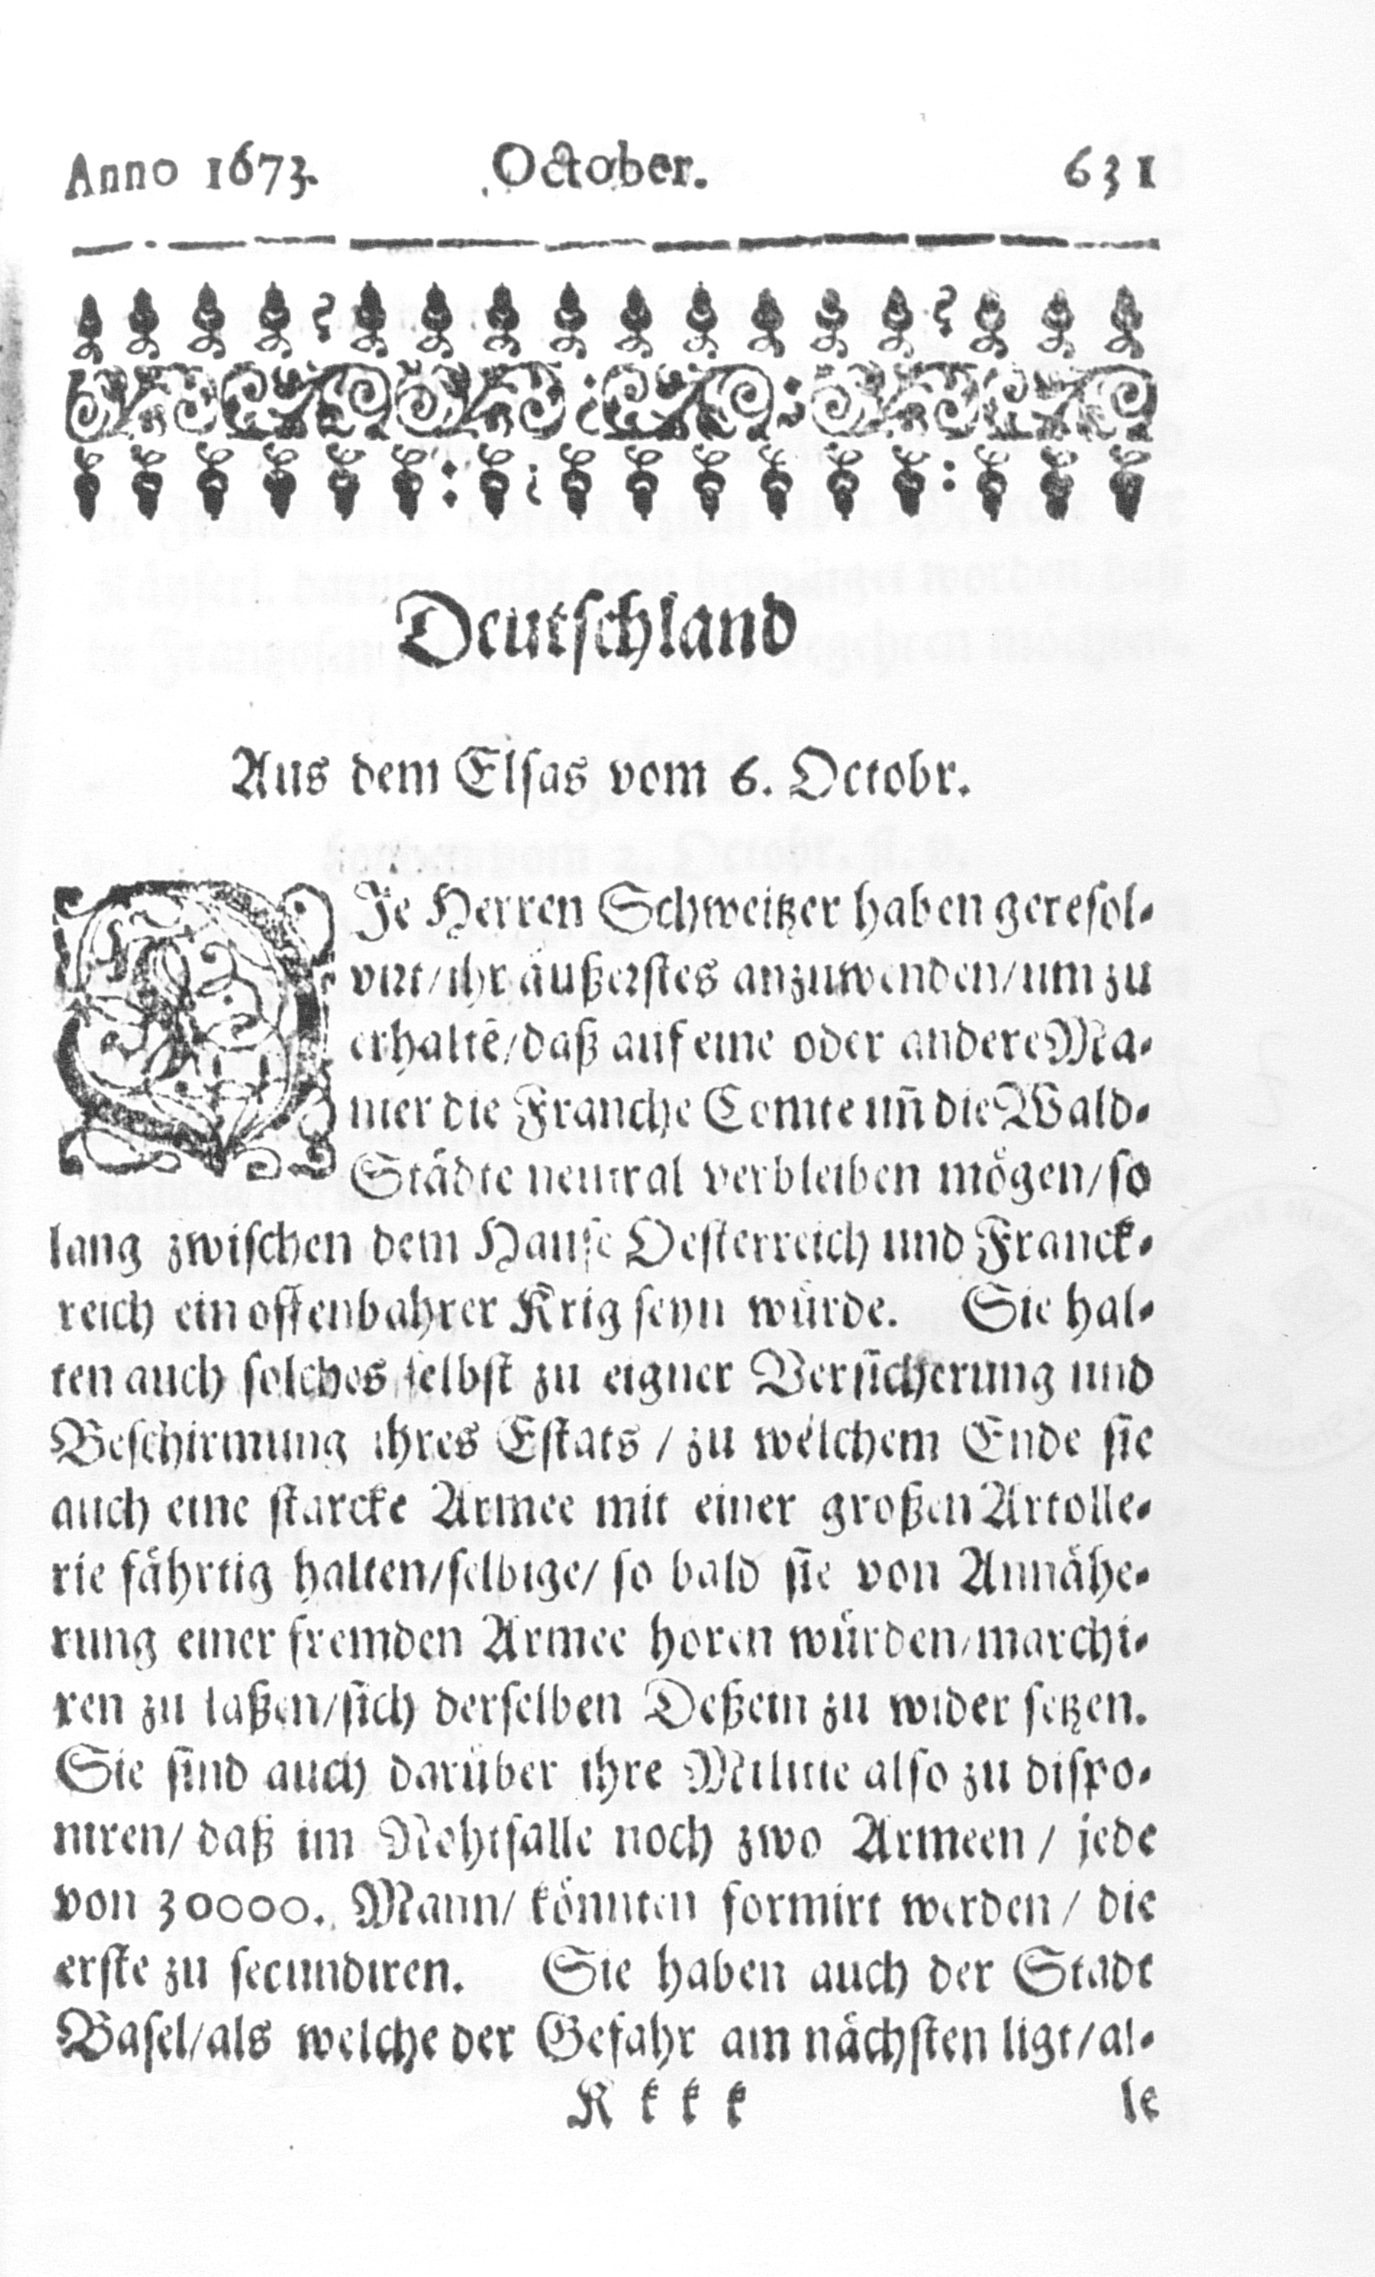 Anno 1673. October. 631
Deutschland
Aus dem Elsas vom 6. Octobr.
DJe Herren Schweitzer haben geresol-
virt/ihr äußerstes anzuwenden/um zu
erhaltē/daß auf eine oder andere Ma-
nier die Franche Comte uñ die Wald-
Städte neutral verbleiben mögen/so
lang zwischen dem Hause Oesterreich und Franck-
reich ein offenbahrer Krig seyn würde. Sie hal-
ten auch solches selbst zu eigner Versicherung und
Beschirmung ihres Estats / zu welchem Ende sie
auch eine starcke Armee mit einer großen Artolle-
rie fährtig halten/selbige/ so bald sie von Annähe-
rung einer fremden Armee horen würden/marchi-
ren zu laßen/sich derselben Deßein zu wider setzen.
Sie sind auch darüber ihre Militie also zu dispo-
niren/ daß im Nohtfalle noch zwo Armeen / jede
von 30000. Mann/ könnten formirt werden / die
erste zu secundiren. Sie haben auch der Stadt
Basel/als welche der Gefahr am nächsten ligt/al-
K k k k le